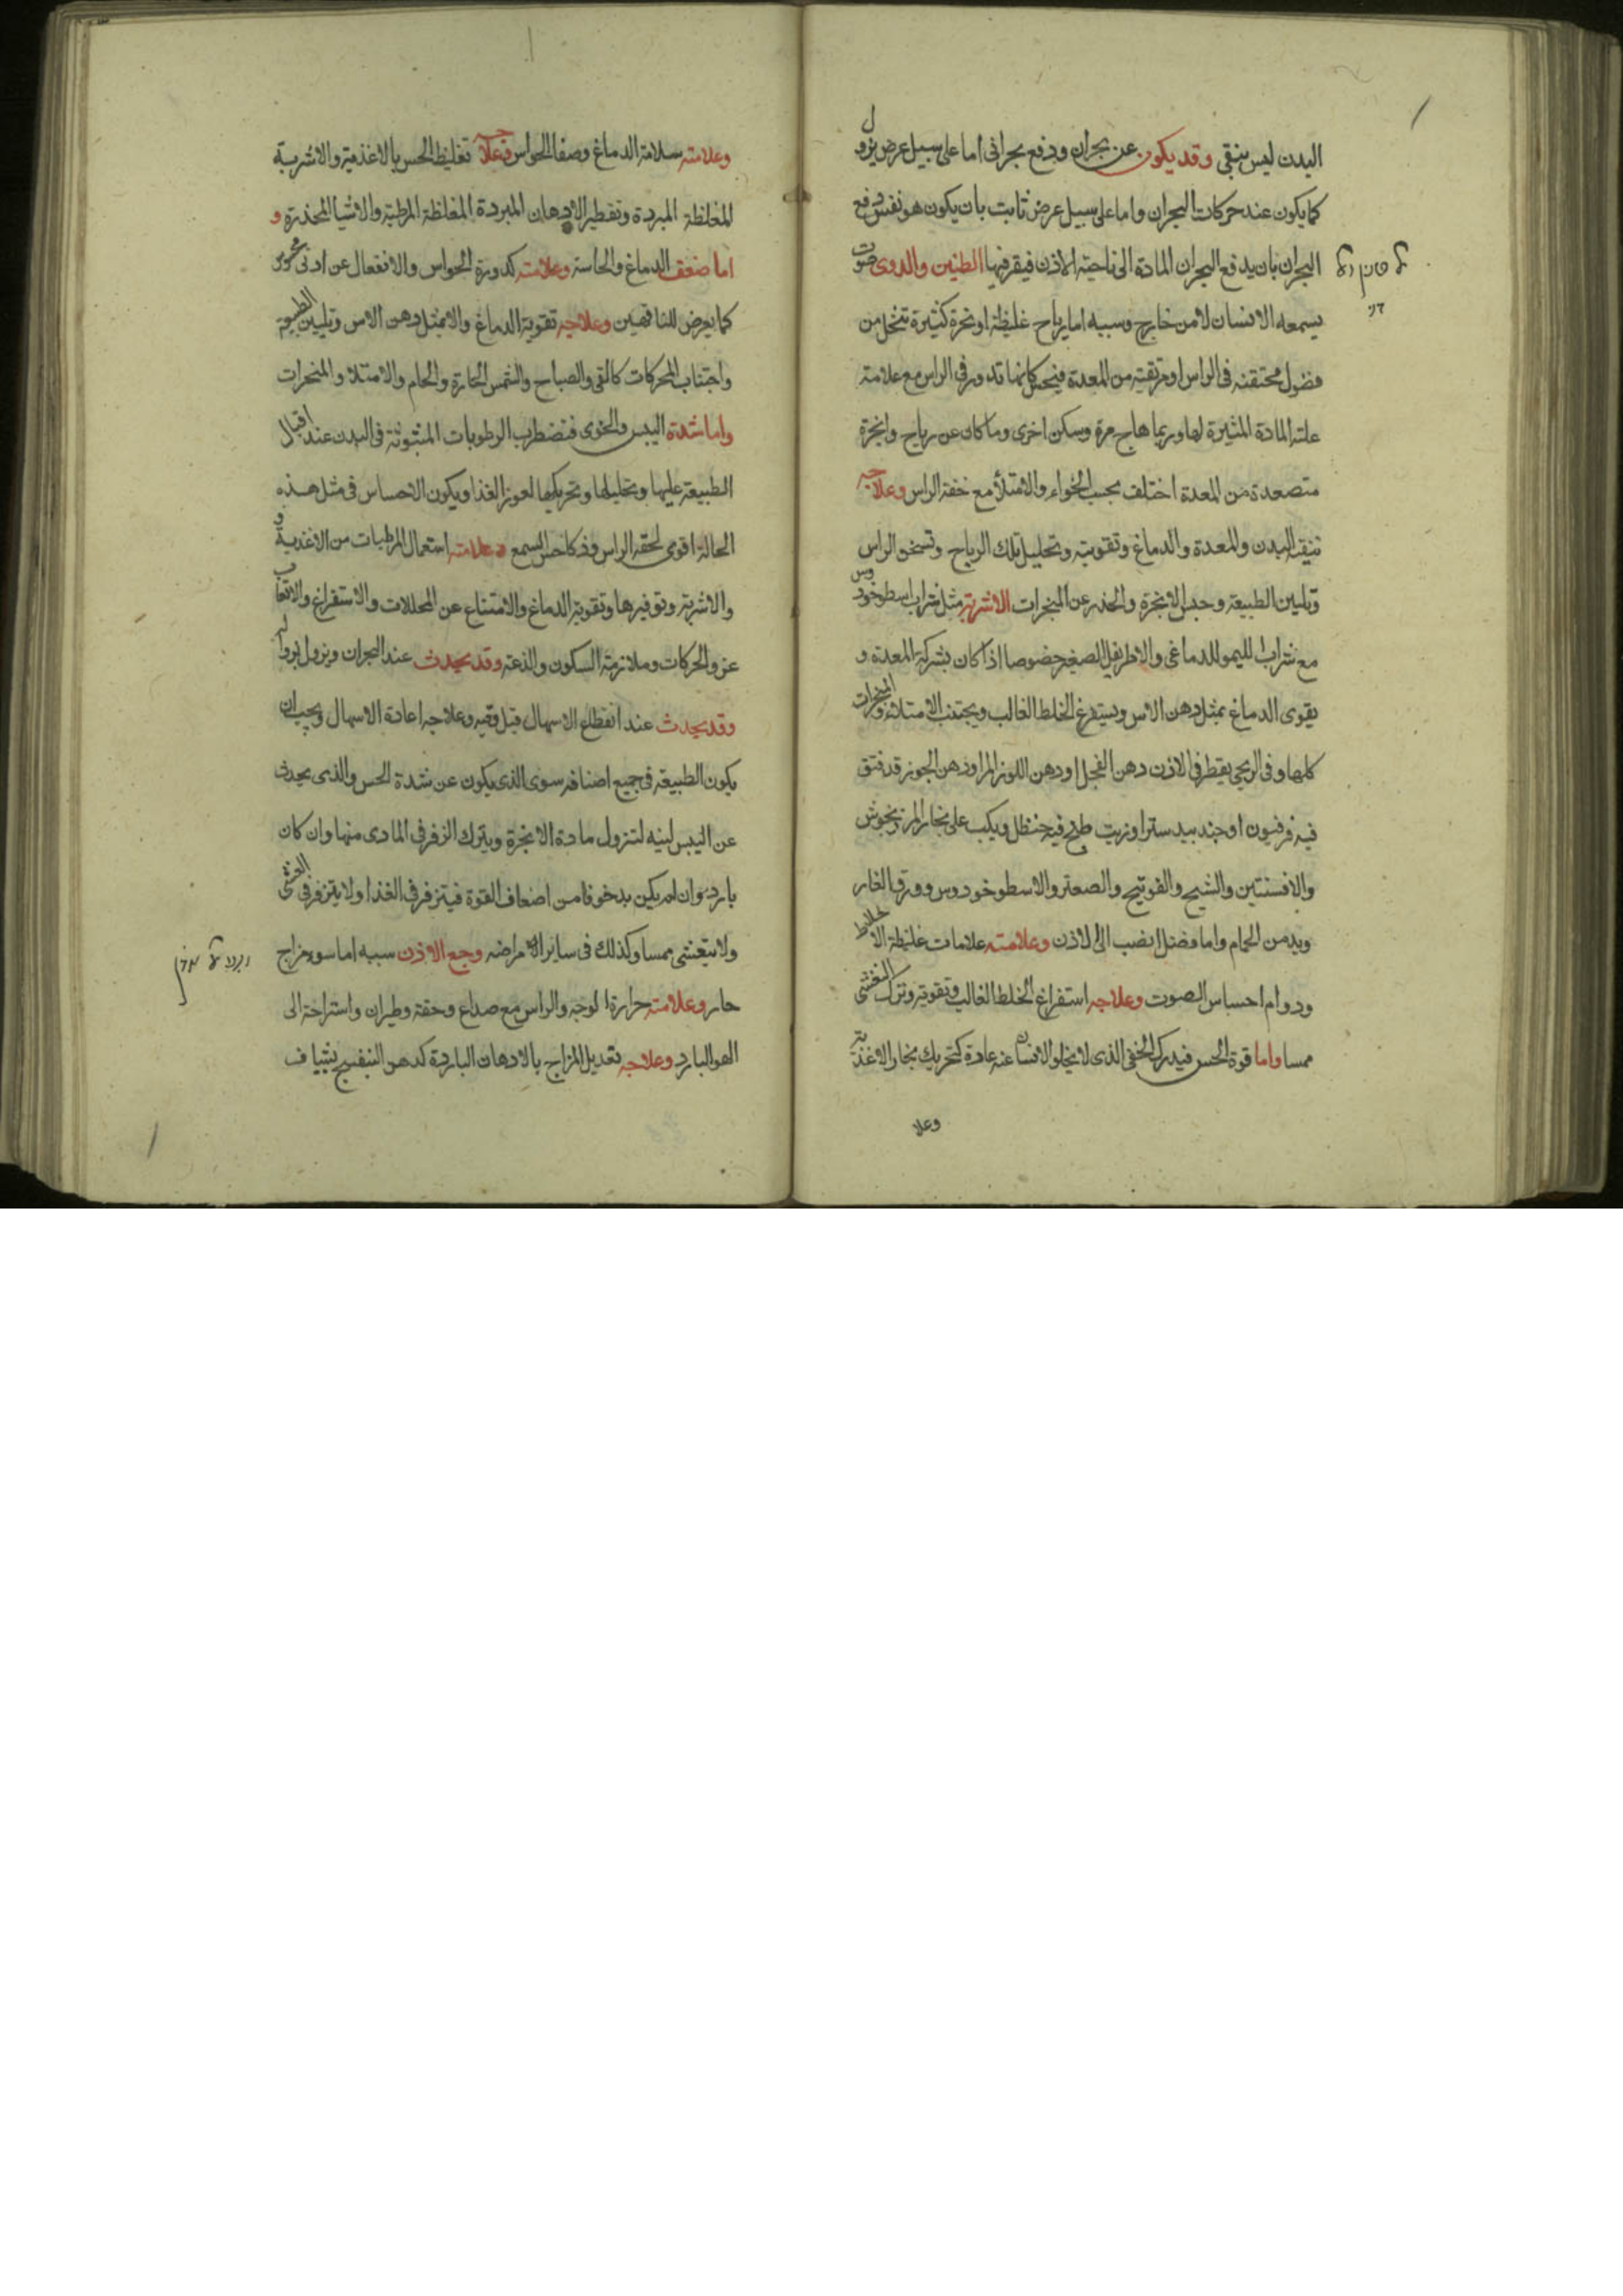 البدن ليس بنقي وقد يكون عن بحران ودفع بحراني اما على سبيل عرض يزول
كما يكون عند حركات البحران واما على سبيل عرض ثابت بان يكون هو نفس دفع
البحران بان يدفع البحران المادة الى ناحية الاذن فيقر فيها الطنين والدوى صوت
يسمعه الانسان لا من خارج وسببه اما رياح غليظة او ابخرة كثيرة تتحلل من
فضول محتقنه في الراس او مرتقية من المعدة فيتخيل كانها تدور في الراس مع علامة
علته المادة المثيرة لها وربما هاج مرة وسكن اخرى وما كان عن رياح وابخرة
متصعدة من المعدة اختلف بحسب الخواء والامتلأ مع خفة الراس وعلاجه
تنقية البدن والمعدة والدماغ وتقويته وتحليل تلك الرياح وتسخن الراس
وتليين الطبيعة وحبس الابخرة والحذر عن المبخرات الاشربة مثل شراب اسطوخودوس
مع شراب الليمو للدماغي والاطريفل الصغير خصوصا اذا كان بشركة المعدة و
يقوى الدماغ بمثل دهن الاس ويستفرغ الخلط الغالب ويجتنب الامتلاء والمبخرات
كلها وفي الريحي يقطر في الاذن دهن الفجل او دهن اللوز المر او دهن الجوز قد فتق
فيه فرفيون او جند بيد ستر او زيت طبخ فيه حنظل ويكب على بخار المرزنجوش
والافسنتين والشيح والفوتنج والصعتر والاسطوخودوس وورق الغار
ويدمن الحمام واما فضل انصب الى الاذن وعلامته علامات غلبة الاخلاط
ودوام احساس الصوت وعلاجه استفراغ الخلط الغالب وتقويته وترك التعشي
ممسا واما قوة الحس فيدرك الخفي الذي لا يخلو الانسان عنه عادة كتحريك بخار الاغذية
وعلا
وعلامته سلامة الدماغ وصفا الحواس وعلاجه تغليظ الحس بالاغذية والاشربة
المغلظة المبردة وتقطير الادهان المبردة المغلظة المرطبة والاشيا المخدرة و
اما ضعف الدماغ والحاسة وعلامته كدورة الحواس والانفعال عن ادنى محرك
كما يعرض للناقهين وعلاجه تقوية الدماغ والا بمثل دهن الاس وتليين الطبيعة
واجتناب المحركات كالقي والصياح والشمس الحارة والحمام والامتلا والمبخرات
واما شدة اليبس والخوى فتضطرب الرطوبات المبثوثة في البدن عند اقبال
الطبيعة عليها وتحليلها وتحريكها لعوز الغذا ويكون الاحساس في مثل هذه
الحالة اقوى لخفة الراس وذكا حس السمع وعلامته استعمال المرطبات من الاغذية و
والاشربة وتوفيرها وتقوية الدماغ والامتناع عن المحللات والاستفراغ والاتعاب
عن والحركات وملازمة السكون والدعة وقد يحدث عند البحران ويزول بزواله
وقد يحدث عند انقطاع الاسهال قبل وقته وعلاجه اعادة الاسهال ويجب ان
يكون الطبيعة في جميع اصنافه سوى الذي يكون عن شدة الحس والذي يحدث
عن اليبس لينه لتنزول مادة الابخرة ويترك الزفر في المادي منها وان كان
بارد وان لم يكن بد خوفا من اضعاف القوة فيتزفر في الغذا ولا يتزفر في العشى
ولا يتعشى ممسا وكذلك في ساير الامراضه وجع الاذن سببه اما سوء مزاج
حار وعلامته حرارة الوجه والراس مع صداع وخفة وطيران واستراحة الى
الهوا البارد وعلاجه تعديل المزاج بالادهان الباردة كدهن البنفسج بشياف